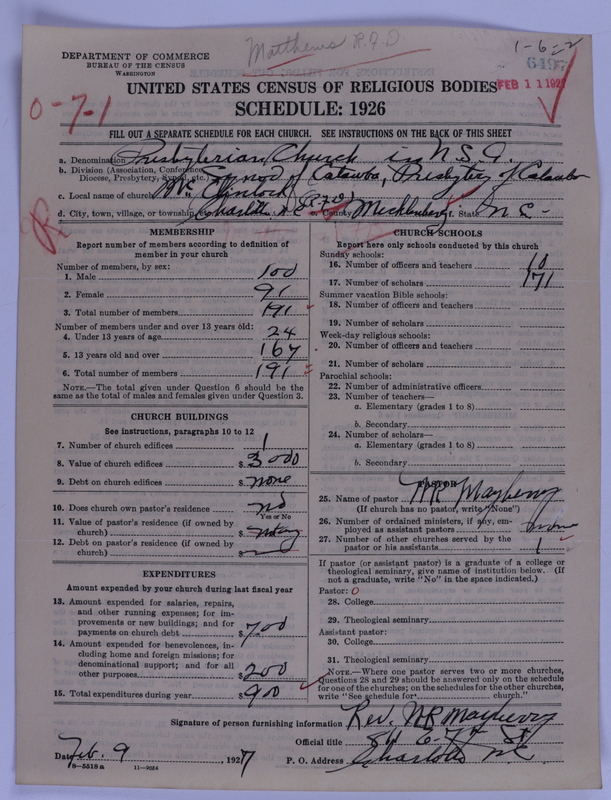 Matthews R.F.D
1-6-2
6497
FEB 11 192
0-7-1
DEPARTMENT OF COMMERCE
BUREAU OF THE CENSUS
WASHINGTON
UNITED STATES CENSUS OF RELIGIOUS BODIES
SCHEDULE: 1926
FILL OUT A SEPARATE SCHEDULE FOR EACH CHURCH. SEE INSTRUCTIONS ON THE BACK OF THIS SHEET
a. Denomination Presbyterian Church in U.S.A.
b. Division (Association, Conference, Diocese, Presbytery, Synod, etc.) Synod of Catawba, Presbytery of Catawba
c. Local name of church Mc Clintock
d. City, town, village, or township Charlotte N.C. (R.F.D) e. County Mecklenburg f. State N.C.
MEMBERSHIP
Report number of members according to definition of
member in your church
Number of members, by sex:
1. Male 100
2. Female 91
3. Total number of members 191
Number of members under and over 13 years old:
4. Under 13 years of age 24
5. 13 years old and over 167
6. Total number of members 191
NOTE.—The total given under Question 6 should be
same as the total of males and females given under Question 3.
CHURCH BUILDINGS
See instructions, paragraphs 10 to 12
7. Number of church edifices 1
8. Value of church edifices $ 3000
9. Debt on church edifices $ none
10. Does church own pastor's residence no
Yes or No
11. Value of pastor's residence (if owned by
church) $
12. Debt on pastor's residence (if owned by
church) $
EXPENDITURES
Amount expended by your church during last fiscal year
13. Amount expended for salaries, repairs,
and other running expenses; for im-
provements or new buildings; and for
payments on church debt $ 700
14. Amount expended for benevolences, in-
cluding home and foreign missions; for
denominational support; and for all
other purposes $ 200
15. Total expenditures during year $ 900
CHURCH SCHOOLS
Report here only schools conducted by this church
Sunday schools:
16. Number of officers and teachers 10
17. Number of scholars 171
Summer vacation Bible schools:
18. Number of officers and teachers
19. Number of scholars
Week-day religious schools:
20. Number of officers and teachers
21. Number of scholars
Parochial schools:
22. Number of administrative officers
23. Number of teachers—
a. Elementary (grades 1 to 8)
b. Secondary
24. Number of scholars—
a. Elementary (grades 1 to 8)
b. Secondary
PASTOR
25. Name of pastor W.R. Mayberry
(If church has no pastor, write "None")
26. Number of ordained ministers, if any, em-
ployed as assistant pastors none
27. Number of other churches served by the
pastor or his assistants 1
If pastor (or assistant pastor) is a graduate of a college or
theological seminary, give name of institution below. (If
not a graduate, write "No" in the space indicated.)
Pastor: 0
28. College
29. Theological seminary
Assistant pastor:
30. College
31. Theological seminary
NOTE.—Where one pastor serves two or more churches,
Questions 28 and 29 should be answered only on the schedule
for one of the churches; on the schedules for the other churches,
write "See schedule for church."
Signature of person furnishing information Rev. W.R. Mayberry
Official title 814 E-7th St
Date Feb. 9, 1927 P. O. Address Charlotte N.C.
8-5518a 11-9054